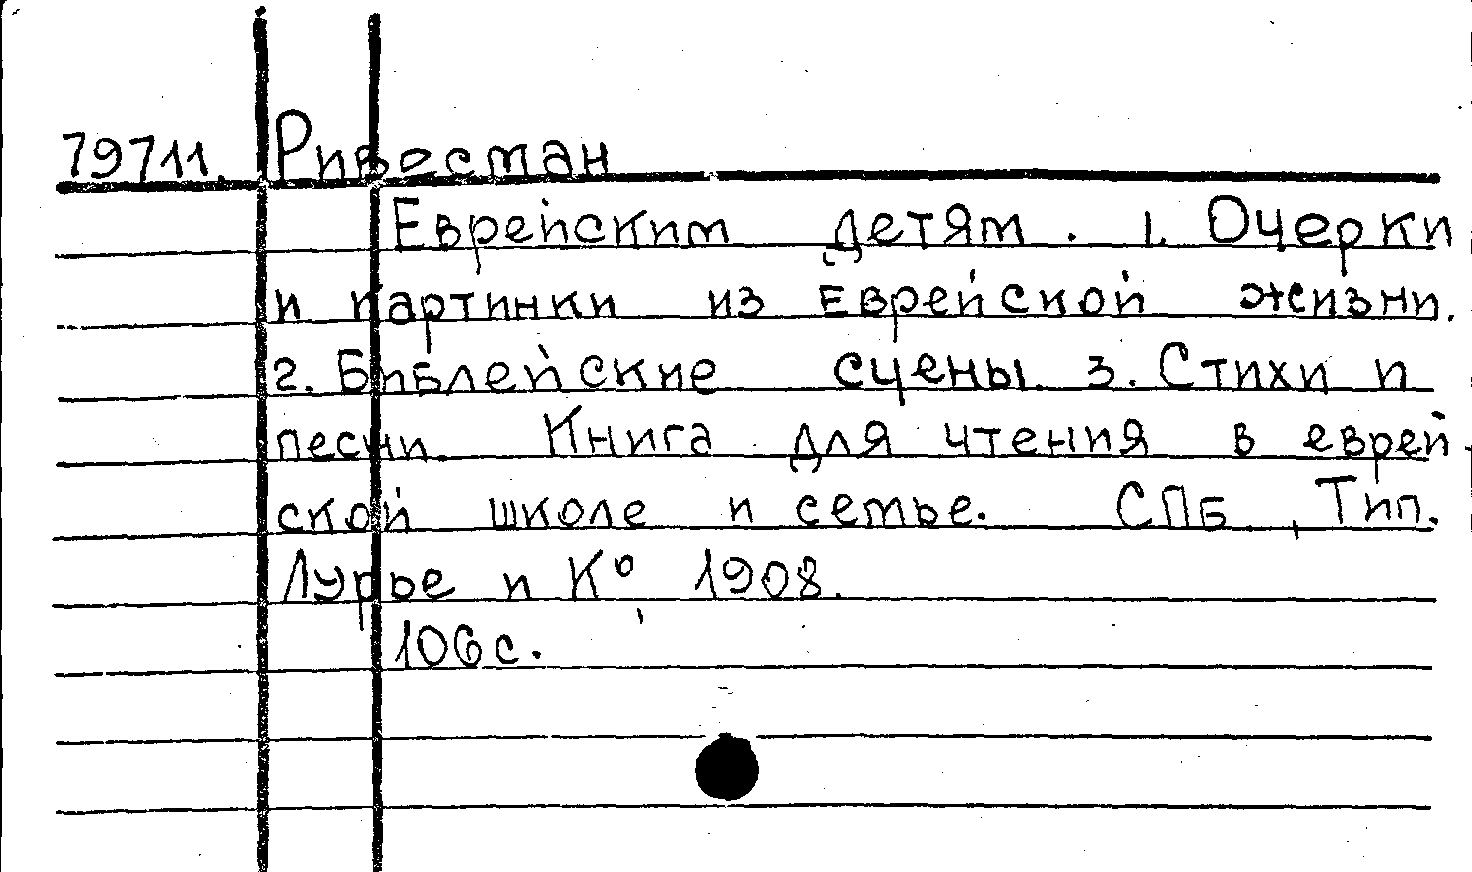 79711. Ривесман
Еврейским детям. 1. Очерки
и картинки из Еврейской жизни.
2. Библейские сцены. 3. Стихи и
песни. Книга для чтения в еврей-
ской школе и семье. СПБ, Тип.
Лурье и К°, 1908.
106 с.